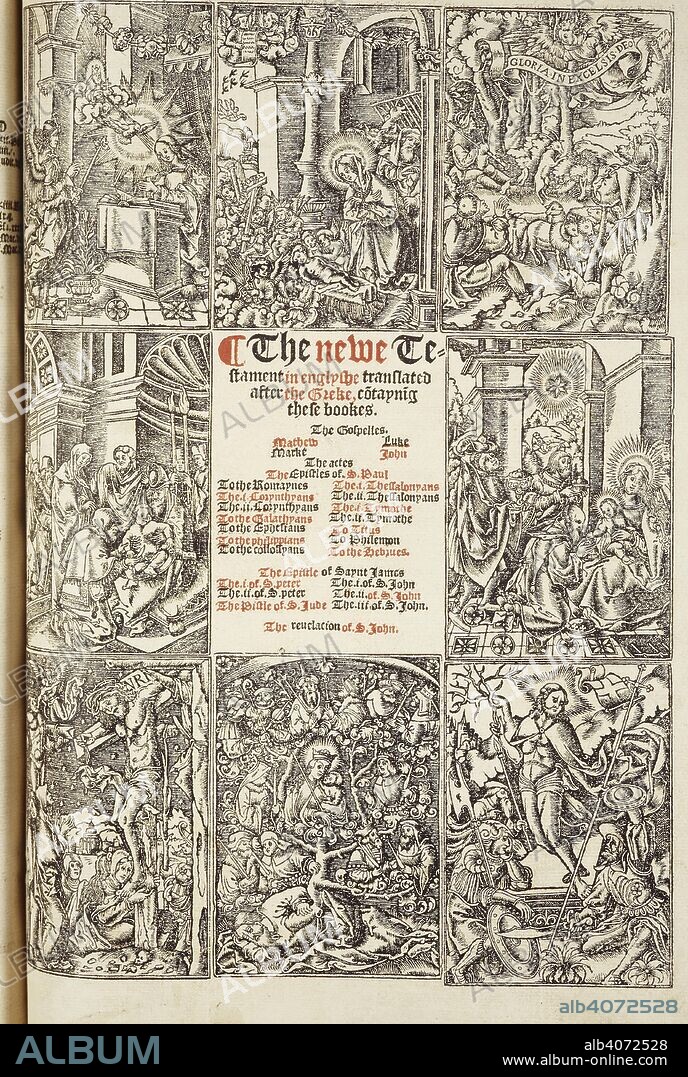 GLORIA IN EXCELSIS DEO
¶ The newe Te-
stament in englyshe translated
after the Greke, cõtaynig
these bookes.
The Gospelles.
Mathew Luke
Marke John
The actes
The Epistles of S. Paul
To the Romaynes The.i. Thessalonyans
The.i. Corynthyans The.ii. Thessalonyans
The.ii. Corynthyans The.i. Tymothe
To the Galathyans The.ii. Tymothe
To the Ephesians To Titus
To the philippians To Philemon
To the collossyans To the Hebrues.
The Epistle of Saynt James
The.i. of. S. peter The.i. of. S. John
The.ii. of. S. peter The.ii. of. S. John
The Pistle of. S. Jude The.iii. of. S. John.
The revelacion of. S. John.
INRI
ALBUM
alb4072528
ALBUM
alb4072528
www.album-online.com